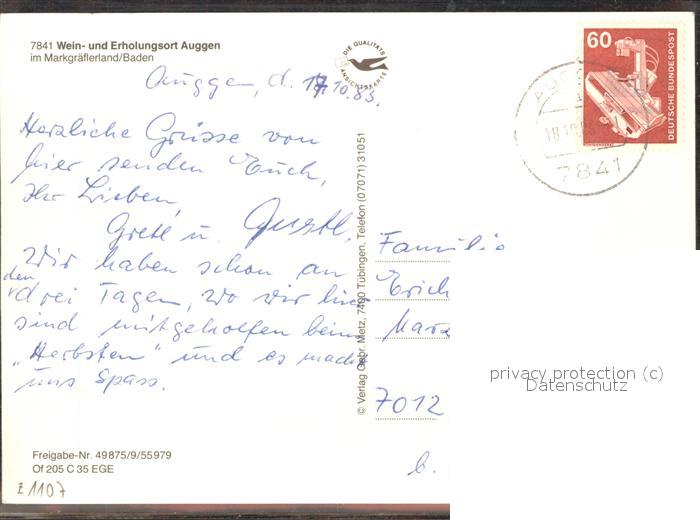 7841 Wein- und Erholungsort Auggen
im Markgräflerland/Baden
DIE QUALITÄTS
ANSICHTSKARTE
60
DEUTSCHE BUNDESPOST
7841
Auggen, d. 17.10.83.
Herzliche Grüsse von
hier senden Euch,
Ihr Lieben,
Grete u. Gustl.
Wir haben schon an
den
drei Tagen, wo wir hier
sind mitgeholfen beim
„Herbsten" und es macht
uns Spass.
© Verlag Gebr. Metz, 7400 Tübingen, Telefon (07071) 31051
Familie
Erich
7012
b.
privacy protection (c)
Datenschutz
Freigabe-Nr. 49875/9/55979
Of 205 C 35 EGE
Z 1107